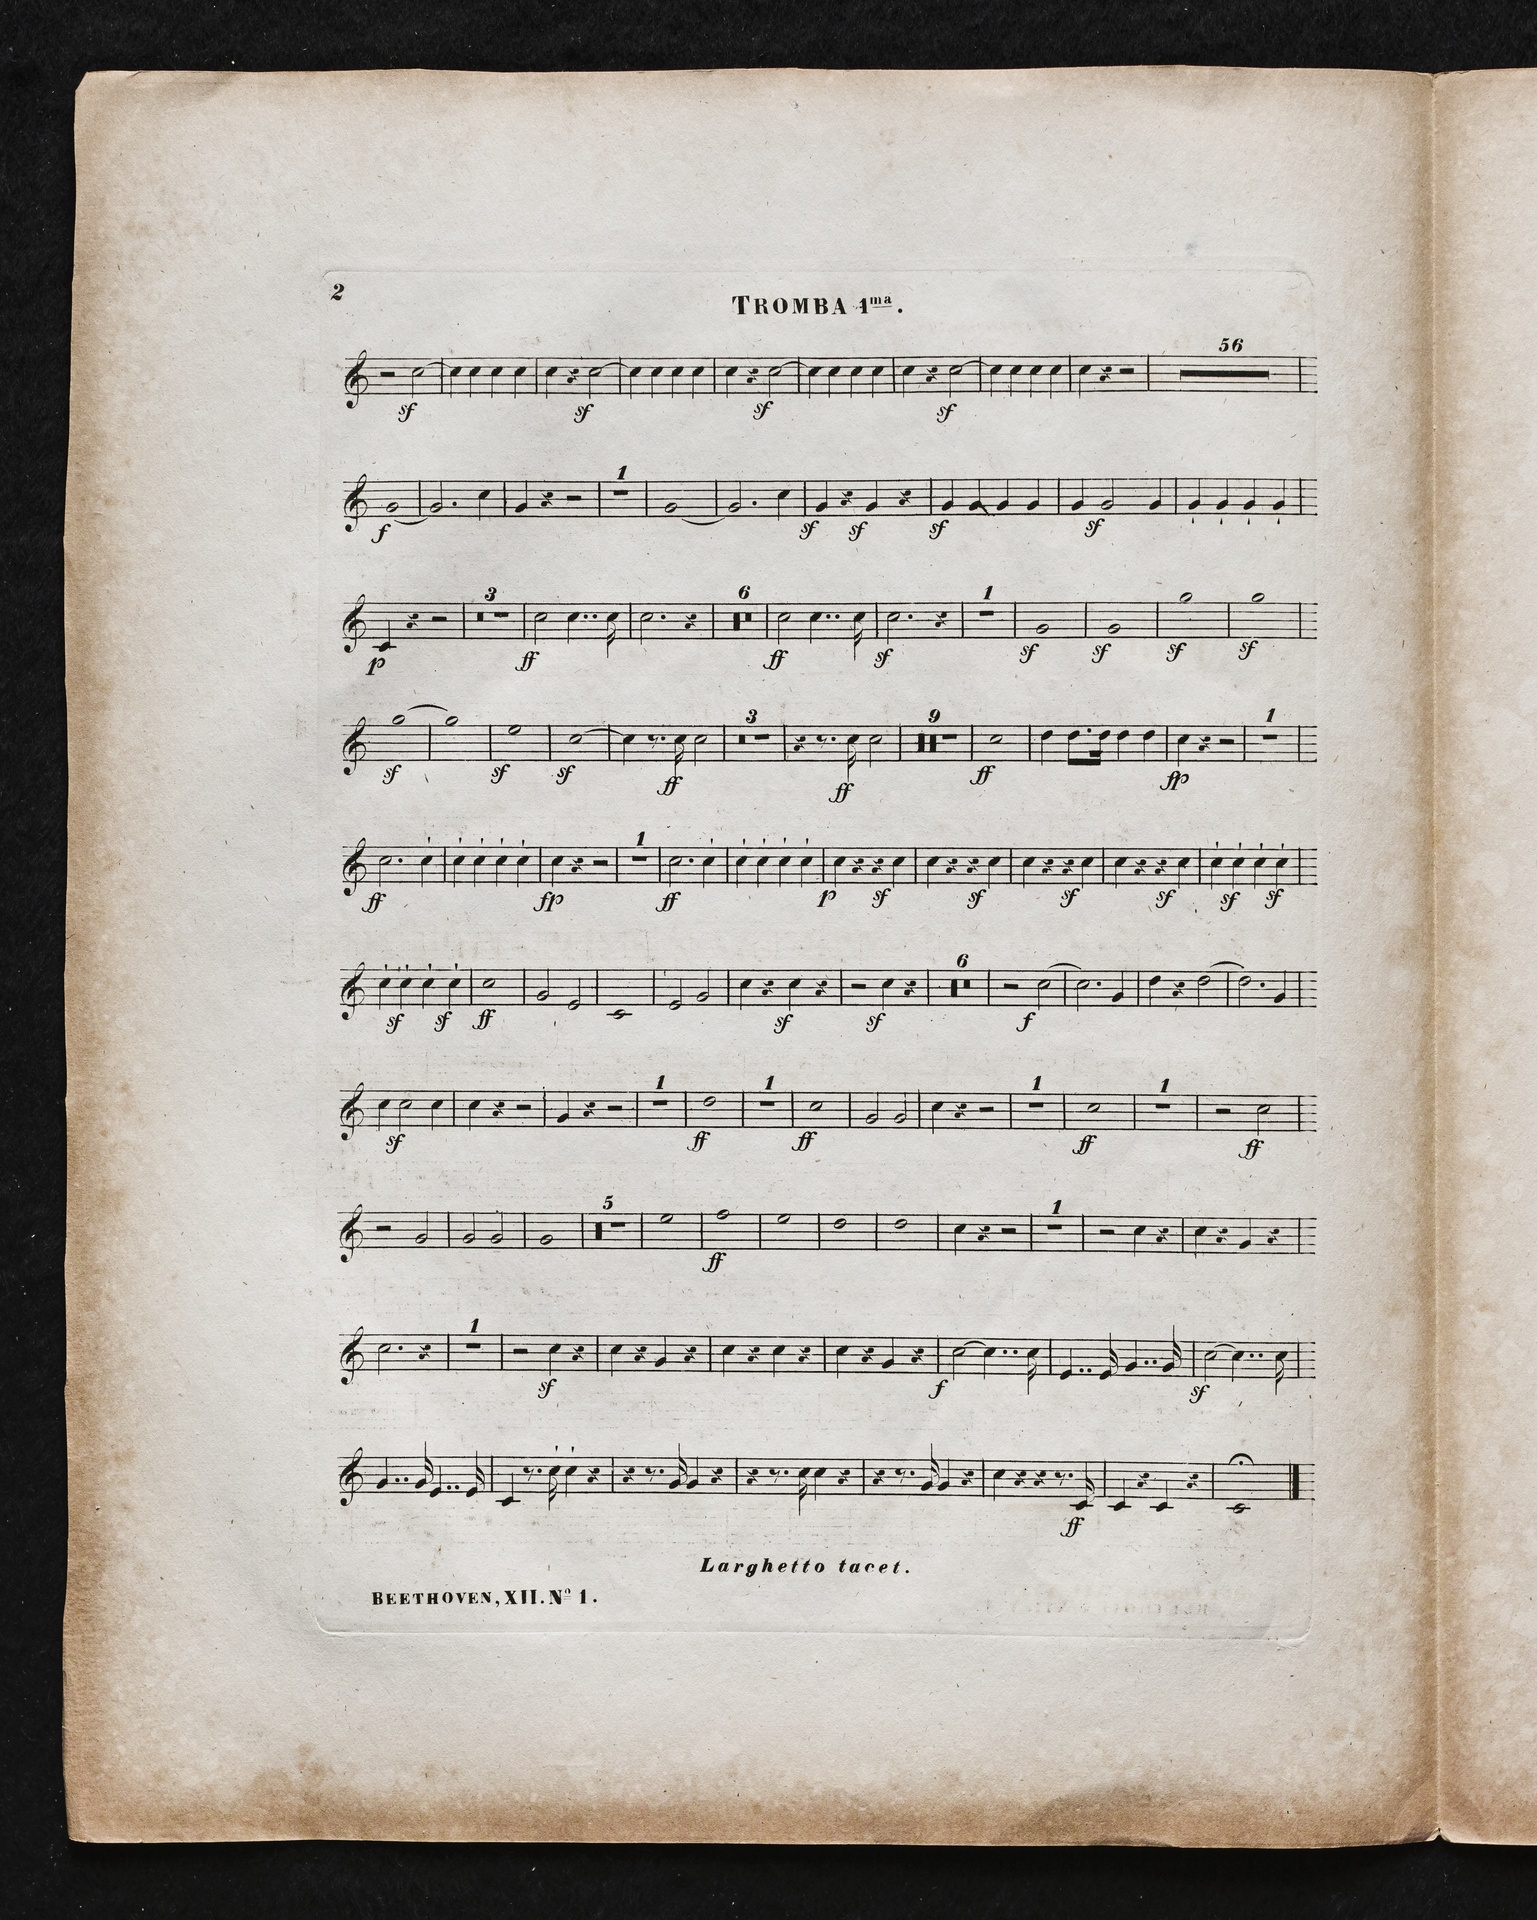 2
TROMBA 1ma.
56
sf sf sf sf
1
f sf sf sf sf
3 6 1
p ff ff sf sf sf sf sf
3 9 1
sf sf sf ff ff ff fp
1
ff fp ff p sf sf sf sf sf sf
6
sf sf ff sf sf f
1 1 1 1
sf ff ff ff ff
5 1
ff
1
sf f sf
ff
Larghetto tacet.
BEETHOVEN, XII. No 1.